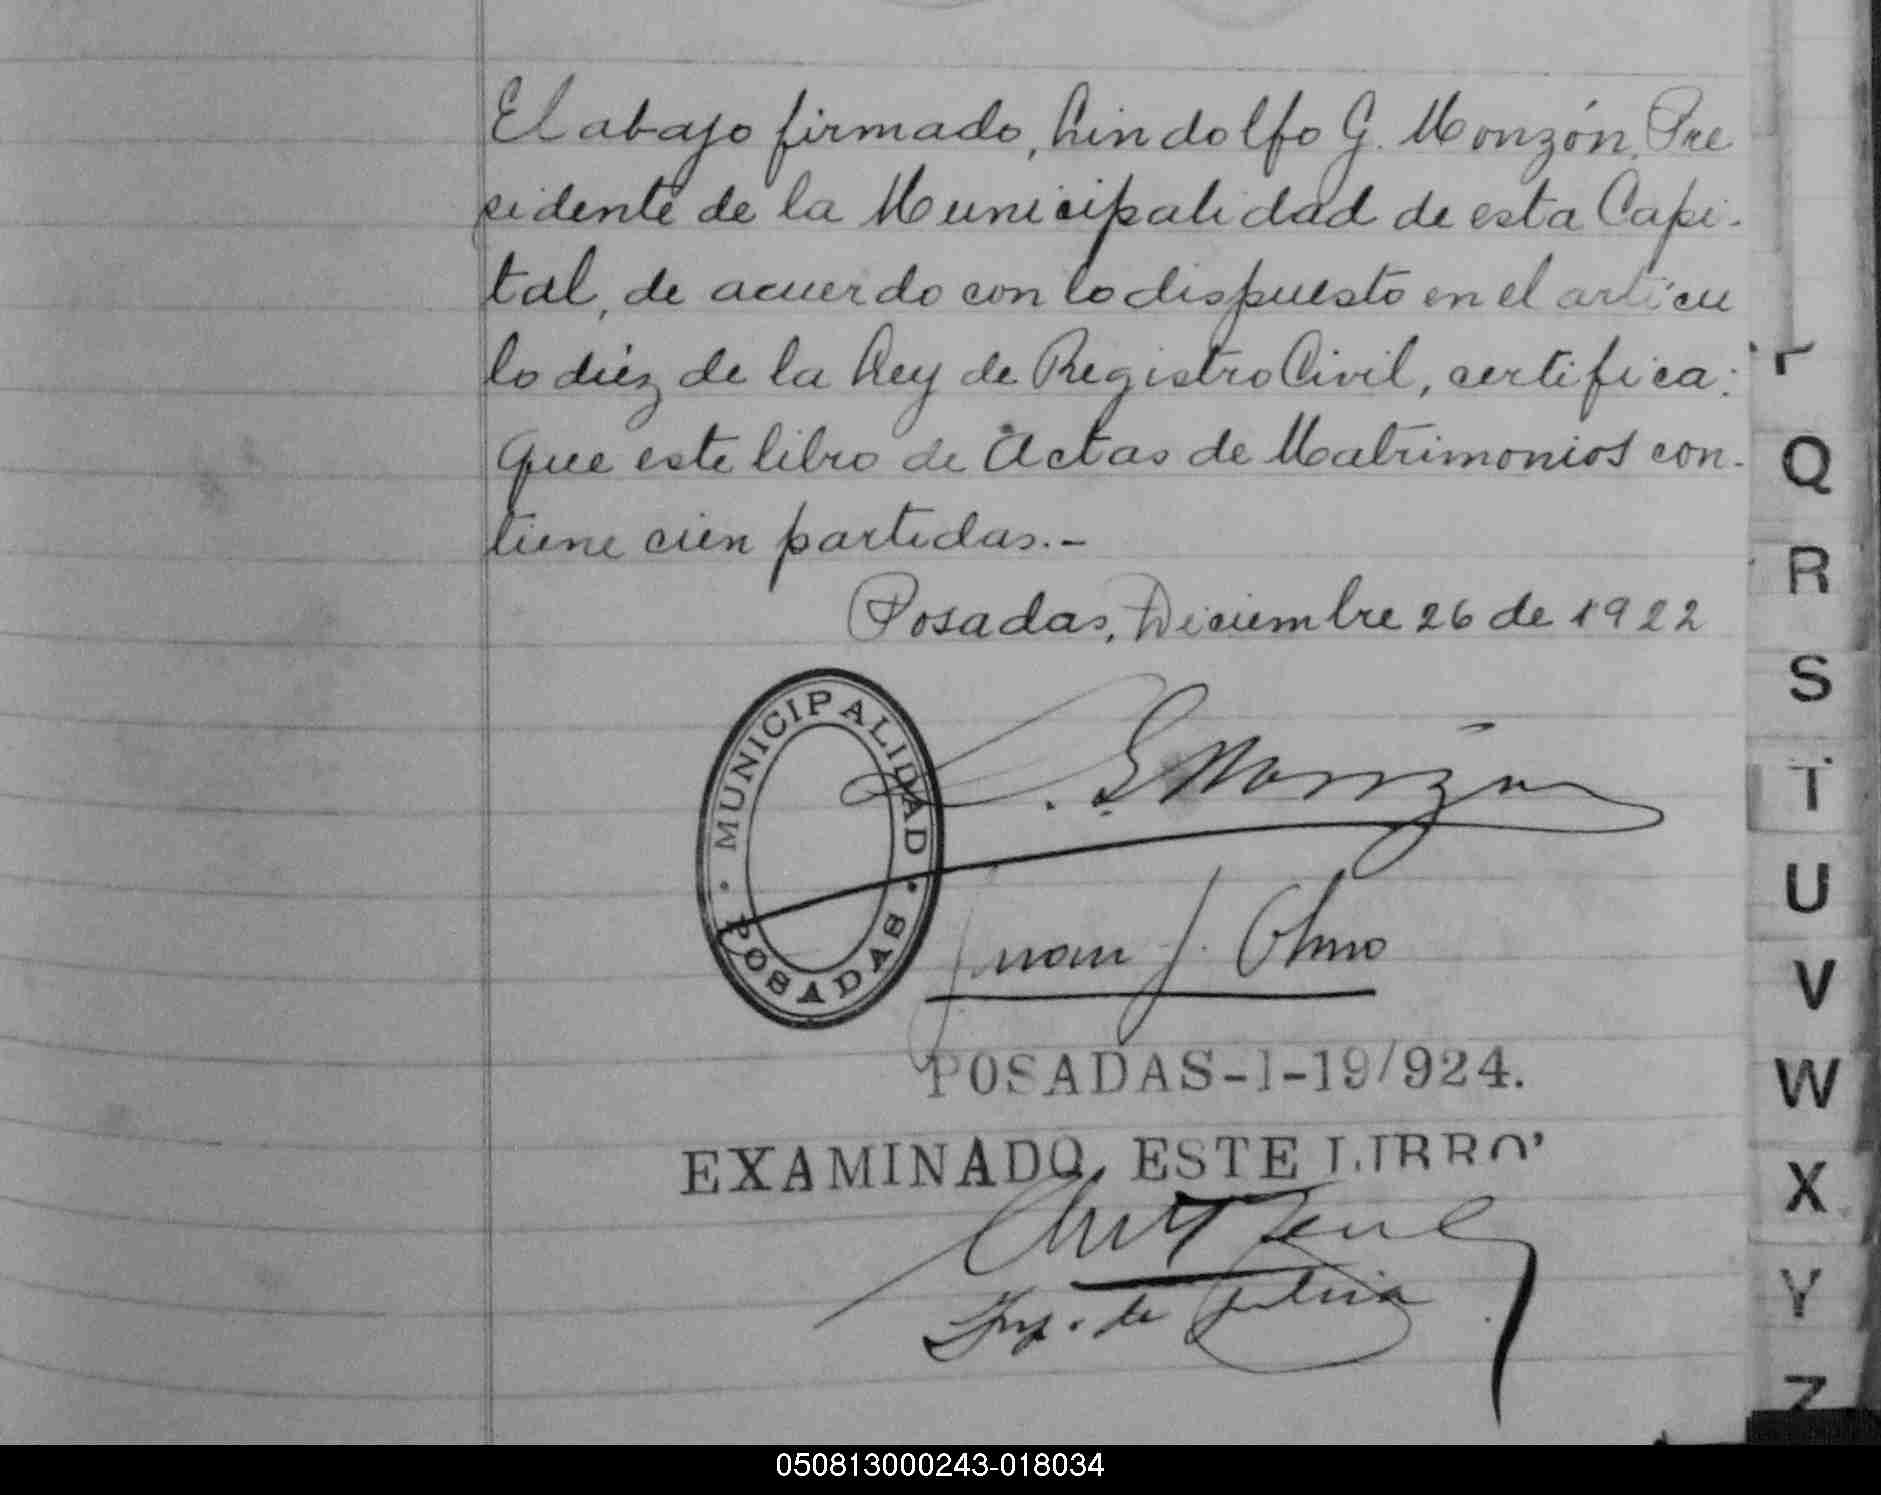 El abajo firmado, Lindolfo G. Monzón, Pre
sidente de la Municipalidad de esta Capi-
tal, de acuerdo con lo dispuesto en el articu
lo diéz de la Ley de Registro Civil, certifica:
Que este libro de Actas de Matrimonios con-
tiene cien partidas.-
Posadas, Diciembre 26 de 1922
MUNICIPALIDAD
POSADAS
L. G. Monzón
Juan J. Olmo
POSADAS-1-19/924.
EXAMINADO, ESTE LIBRO'
Insp. de
r
Q
R
S
T
U
V
W
X
Y
Z
050813000243-018034